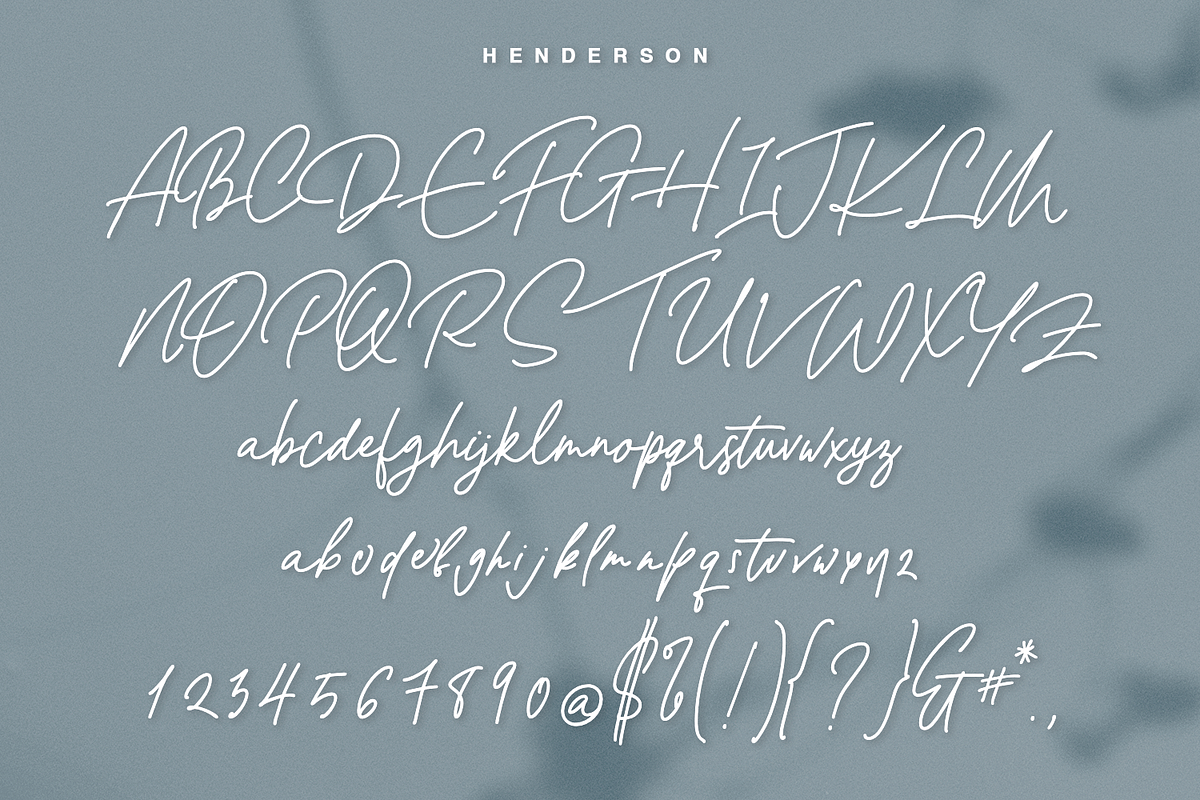 HENDERSON
ABCDEFGHIJKLM
NOPQRSTUVWXYZ
abcdefghijklmnopqrstuvwxyz
abcdefghijklmnpqstuvwxyz
1234567890@$%(!){?}&#*.,